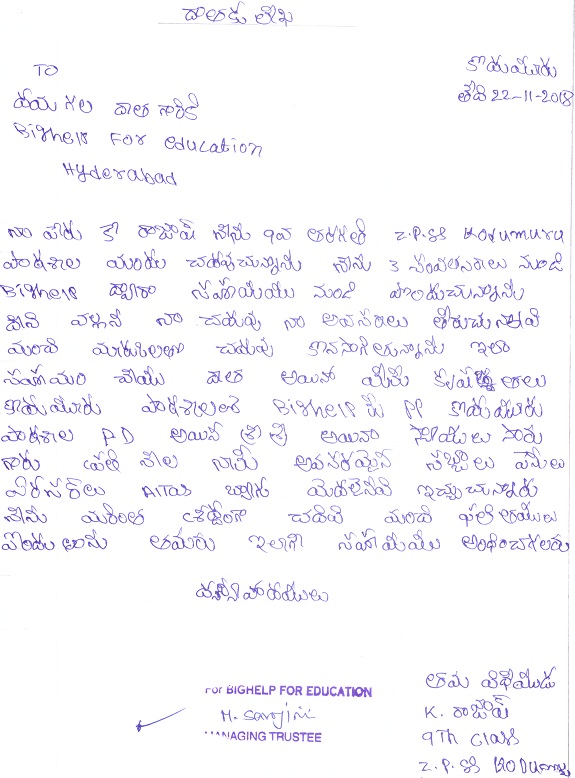 దాతకు లేఖ
కొడుమూరు
తేది 22-11-2018
TO
దయ గల దాత గారికి
Bighelp For education
Hyderabad
నా పేరు కె రాజేష్ నేను 9వ తరగతి Z.P.SS Kodumuru
పాఠశాల యందు చదువుచున్నాను నేను 3 సంవత్సరాలు నుండి
Bighelp ద్వారా సహాయము నుండి పొందుచున్నాను
దీని వల్లనే నా చదువు నా అవసరాలు తీరుచున్నవి
మంచి మార్కులతో చదువు కొనసాగిస్తున్నాను ఇలా
సహాయం చేయు దాత అయిన మీకు కృతజ్ఞతలు
కొడుమూరు పాఠశాలంతా Bighelp కు PP కొడుమూరు
పాఠశాల PD అయిన శ్రీ శ్రీ అయిన సారు
గారు ప్రతి నెల నాకు అవసరమైన సబ్బులు పెన్నులు
మొదలైనవి ఇచ్చుచున్నారు
నేను మరింత శ్రద్ధగా చదివి మంచి ఫలితాలు
పొందుతాను తమరు ఇలాగే సహాయము అందించగలరు
ధన్యవాదములు
తమ విధేయుడు
K. రాజేష్
9Th class
Z.P.SS Kodumuru
For BIGHELP FOR EDUCATION
H. Sarojini
MANAGING TRUSTEE